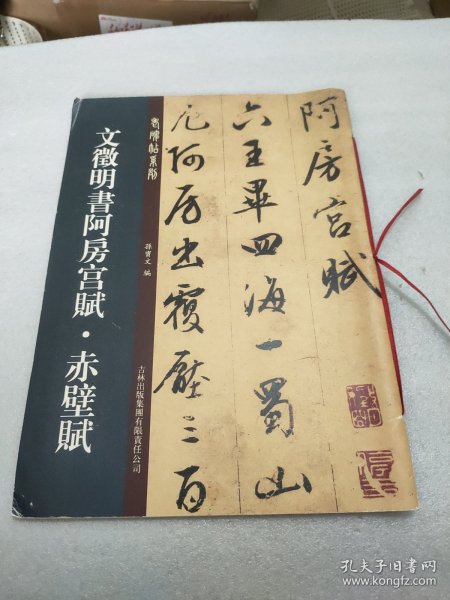 老碑帖系列
文徵明書阿房宮賦・赤壁賦
孫寶文 編
吉林出版集團有限責任公司
阿房宮賦
六王畢四海一蜀山
兀阿房出覆壓三百
孔夫子旧书网
www.kongfz.com